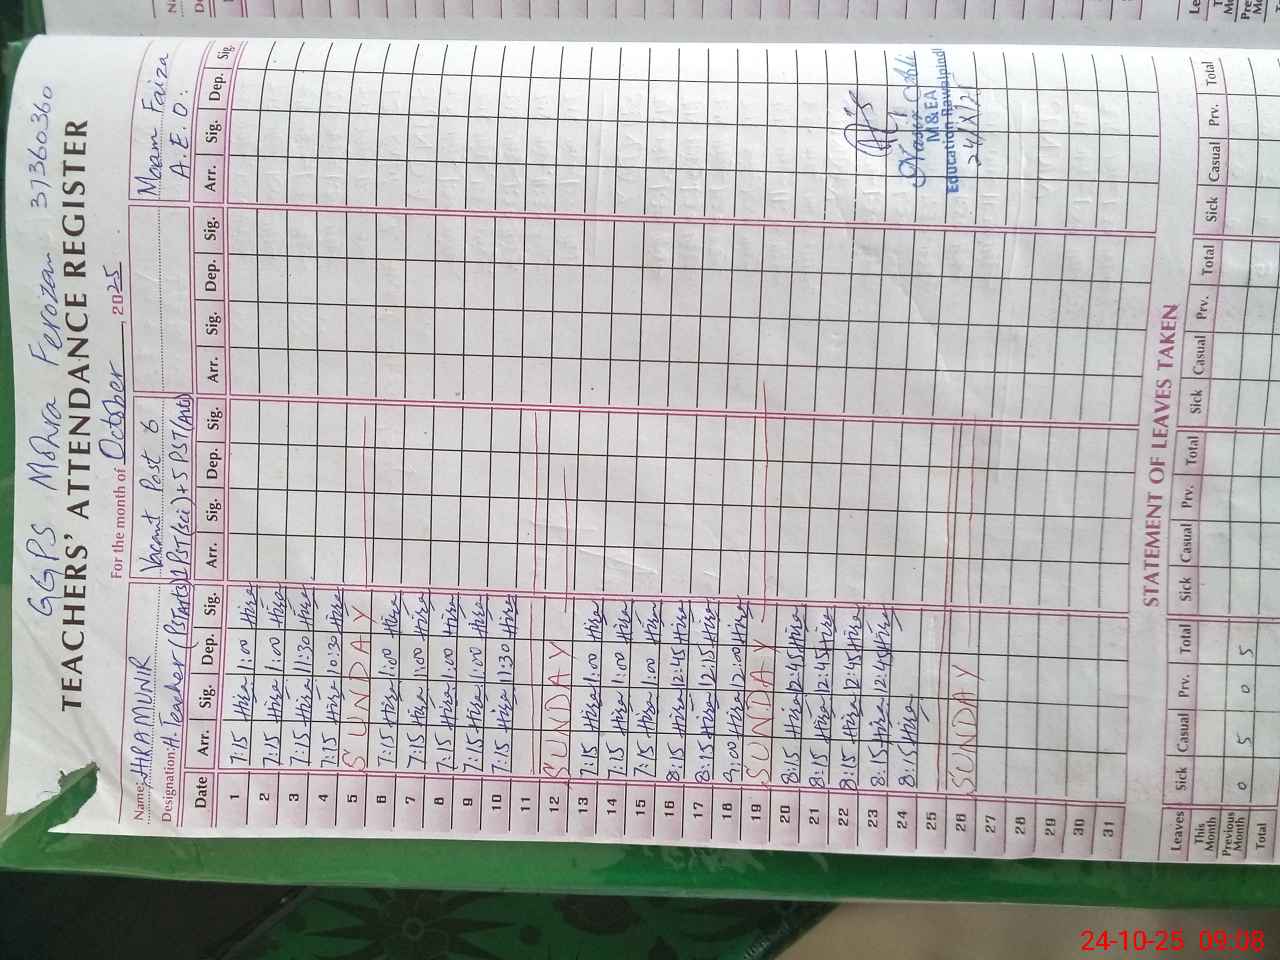 GGPS Mohra Ferozan 37360360
TEACHERS' ATTENDANCE REGISTER
For the month of October, 2025
Name: HIRA MUNIR Vacant Post 6 Maam Faiza
Designation: H. Teacher (PST(Arts)) 1 PST(Sci) + 5 PST(Arts) A.E.O.
Date Arr. Sig. Dep. Sig. Arr. Sig. Dep. Sig. Arr. Sig. Dep. Sig. Arr. Sig. Dep. Sig.
1 7:15 Hira 1:00 Hira
2 7:15 Hira 1:00 Hira
3 7:15 Hira 11:30 Hira
4 7:15 Hira 10:30 Hira
5 SUNDAY
6 7:15 Hira 1:00 Hira
7 7:15 Hira 1:00 Hira
8 7:15 Hira 1:00 Hira
9 7:15 Hira 1:00 Hira
10 7:15 Hira 11:30 Hira
11
12 SUNDAY
13 7:15 Hira 1:00 Hira
14 7:15 Hira 1:00 Hira
15 7:15 Hira 1:00 Hira
16 8:15 Hira 12:45 Hira
17 8:15 Hira 12:15 Hira
18 9:00 Hira 12:00 Hira
19 SUNDAY
20 8:15 Hira 12:45 Hira
21 8:15 Hira 12:45 Hira
22 8:15 Hira 12:45 Hira
23 8:15 Hira 12:45 Hira
24 8:15 Hira
25
26 SUNDAY
27
28
29
30
31
M&EA
Education Rawalpindi
24/X/25
STATEMENT OF LEAVES TAKEN
Leaves Sick Casual Prv. Total Sick Casual Prv. Total Sick Casual Prv. Total Sick Casual Prv. Total
This Month
Previous Month 0 5 0 5
Total
24-10-25 09:08